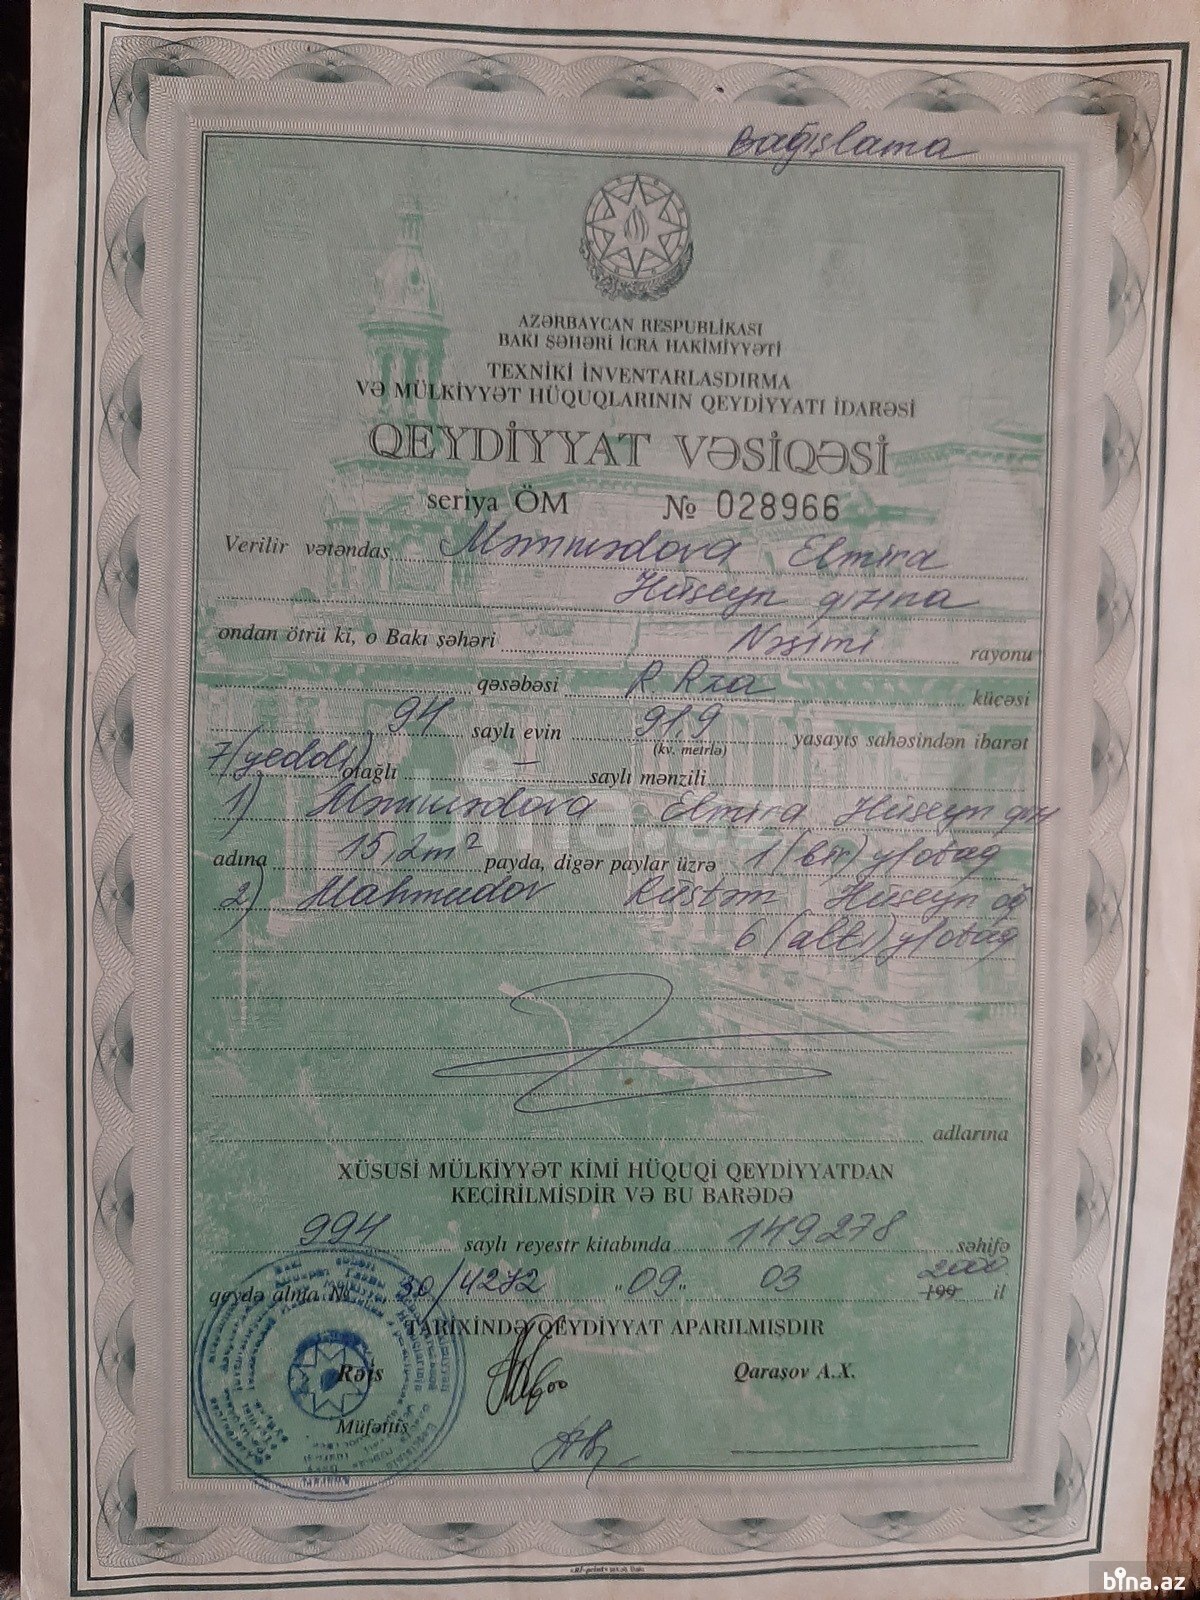 Bağışlama
AZƏRBAYCAN RESPUBLİKASI
BAKI ŞƏHƏRİ İCRA HAKİMİYYƏTİ
TEXNİKİ İNVENTARLAŞDIRMA
VƏ MÜLKİYYƏT HÜQUQLARININ QEYDİYYATI İDARƏSİ
QEYDİYYAT VƏSİQƏSİ
seriya ÖM № 028966
Verilir vətəndaş Məmmədova Elmira
Hüseyn qızına
ondan ötrü ki, o Bakı şəhəri Nəsimi rayonu
qəsəbəsi R. Rza küçəsi
94 saylı evin 91,9 yaşayış sahəsindən ibarət
(kv. metrlə)
7 (yeddi) otaqlı — saylı mənzili
1) Məmmədova Elmira Hüseyn qızı
adına 15,2m² payda, digər paylar üzrə 1 (bir) y/otaq
2) Mahmudov Rüstəm Hüseyn oğ
6 (altı) y/otaq
adlarına
XÜSUSİ MÜLKİYYƏT KİMİ HÜQUQİ QEYDİYYATDAN
KEÇİRİLMİŞDİR VƏ BU BARƏDƏ
994 saylı reyestr kitabında 149278 səhifə
qeydə alma № 30/4272 "09" 03 2000 199 il
TARİXİNDƏ QEYDİYYAT APARILMIŞDIR
Rəis Qaraşov A.X.
Müfəttiş
bina.az
bina.az